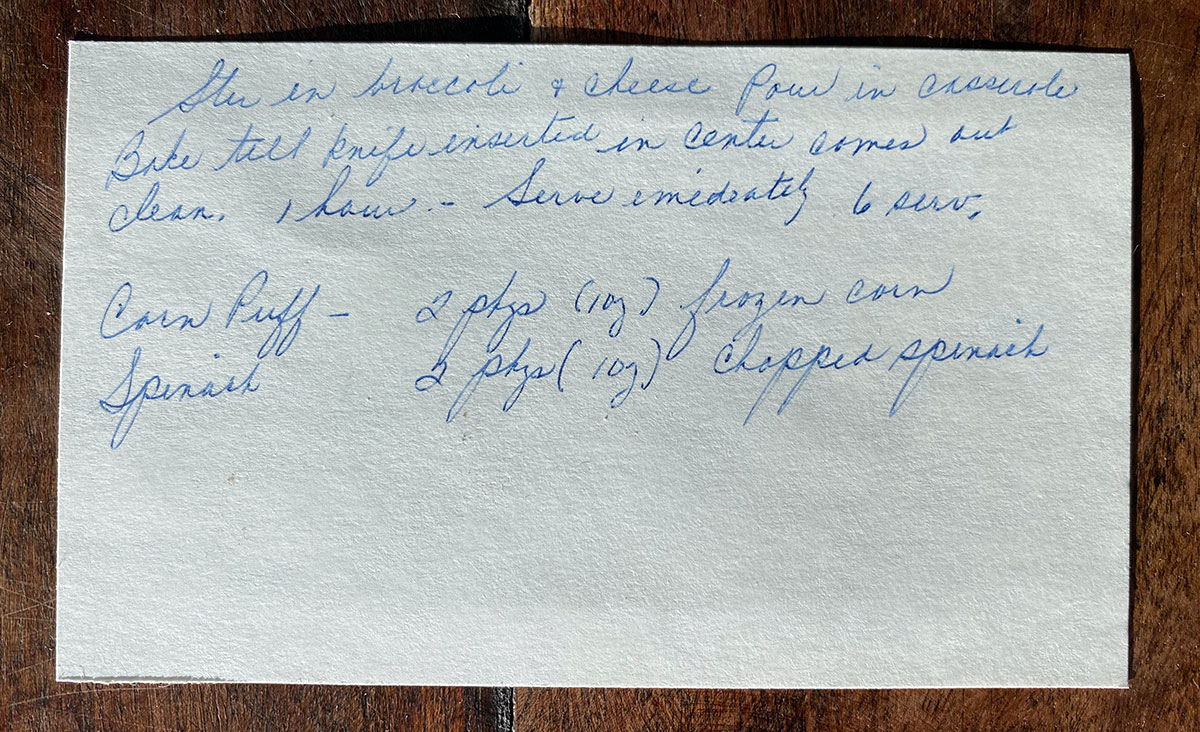 Stir in broccoli & cheese Pour in casserole
Bake till knife inserted in center comes out
clean. 1 hour. - Serve emideately 6 serv.
Corn Puff - 2 pkgs (10z) frozen corn
Spinach 2 pkgs (10z) chopped spinach